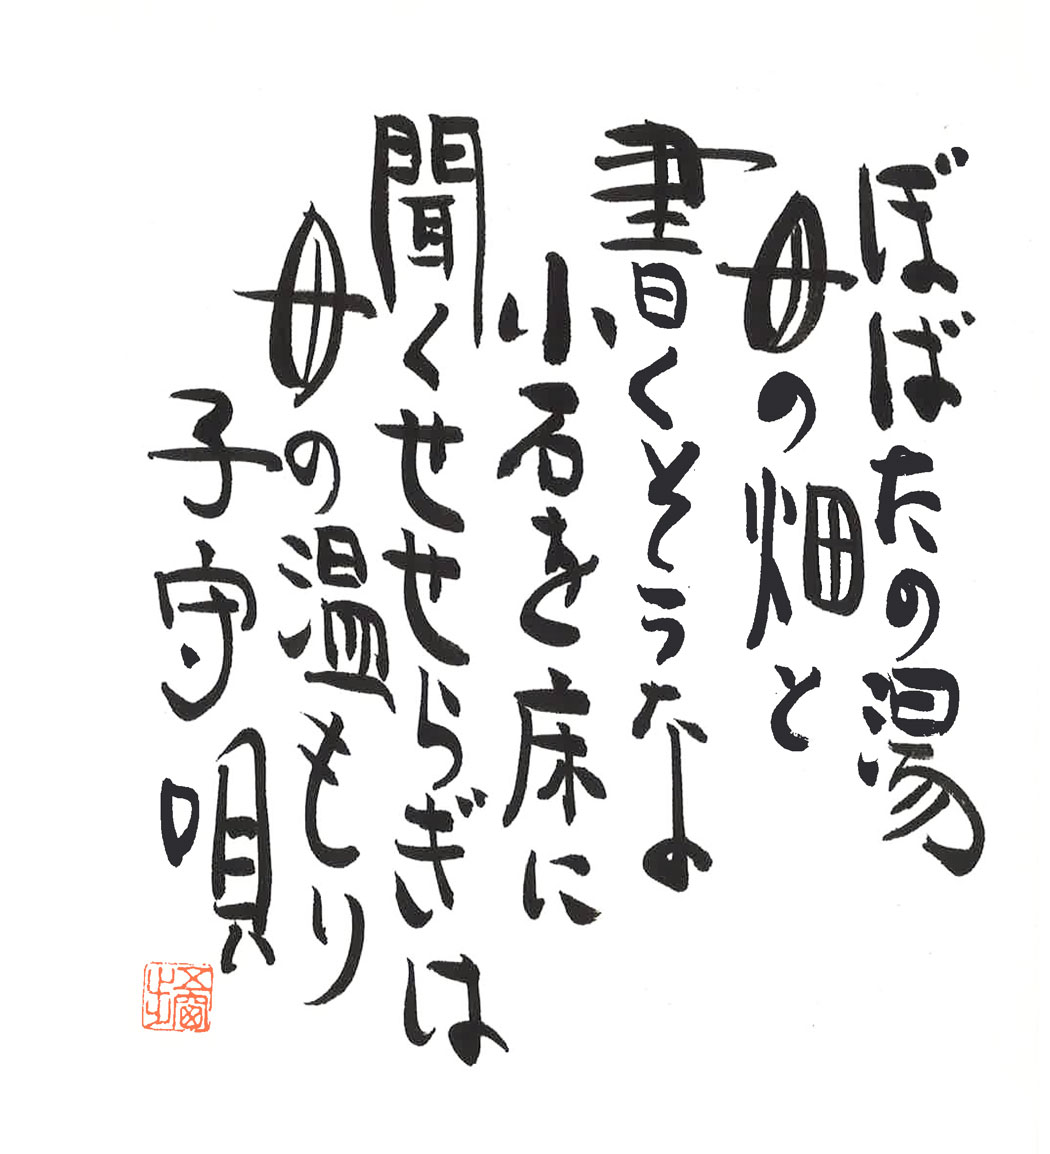 ぼばたの湯
母の畑と
書くそうなよ
小石を床に
聞くせせらぎは
母の温もり
子守唄